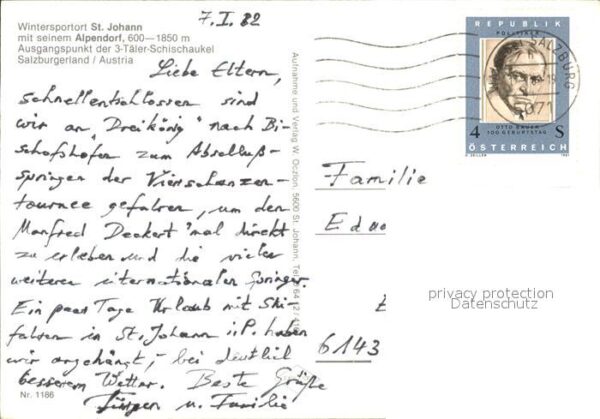 7.I.82
Wintersportort St. Johann
mit seinem Alpendorf, 600—1850 m
Ausgangspunkt der 3-Täler-Schischaukel
Salzburgerland / Austria
Liebe Eltern,
schnellentschlossen sind
wir an "Dreikönig" nach Bi-
schofshofen zum Abschluß-
springen der Vierschanzen-
tournee gefahren, um den
Manfred Deckert 'mal direkt
zu erleben und die vielen
weiteren internationalen Springer.
Ein paar Tage Urlaub mit Ski-
fahren in St. Johann i.P. haben
wir angehängt,- bei deutlich
besserem Wetter. Beste Grüße
Jürgen u. Familie
Nr. 1186
Aufnahme und Verlag W. Oczlon, 5600 St. Johann, Tel.
REPUBLIK
ÖSTERREICH
OTTO BAUER
100. GEBURTSTAG
4 S
SALZBURG
Familie
Edua
privacy protection
Datenschutz
6143